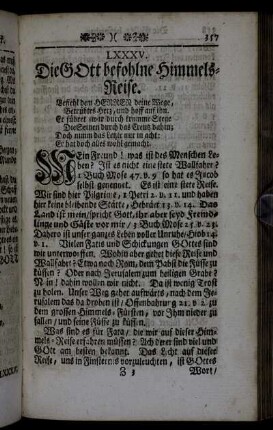 )( 357
LXXXV.
Die GOtt befohlne Himmels-
Reise.
Befiehl dem HERREN deine Wege,
Betrübtes Hertz, und hoff auf ihn.
Er führet zwar durch krumme Stege
Die Seinen durch das Creutz dahin;
Doch nimm das Letzte nur in acht:
Er hat doch alles wohl gemacht.
MEin Freund! was ist des Menschen Le-
ben? Ists es nicht eine stete Wallfahrt?
1 Buch Mose 47. v. 9 so hat es Jacob
selbst genennet. Es ist eine stete Reise.
Wir sind hier Pilgrime, 1 Petri 2. v. 11. und haben
hier keine bleibende Städte, Hebräer 13. v. 14. Das
Land ist mein, spricht Gott, ihr aber seyd Fremd-
linge und Gäste vor mir, 3 Buch Mose 25. v. 23.
Dahero ist unser gantzes Leben voller Unruhe, Hiob 14.
v. 1. Vielen Fatis und Schickungen GOttes sind
wir unterworffen. Wohin aber gehet diese Reise und
Wallfahrt? Etwa nach Rom, dem Pabst die Füsse zu
küssen? Oder nach Jerusalem zum heiligen Grabe?
Nein! dahin wollen wir nicht. Da ist wenig Trost
zu holen. Unser Weg gehet aufwärts, nach dem Je-
rusalem das da droben ist, Offenbahrung 21. v. 2. zu
dem grossen Himmels-Fürsten, vor Ihm nieder zu
fallen, und seine Füsse zu küssen.
Was sind es für Fata, die wir auf dieser Him-
mels-Reise erfahren müssen? Ach! derer sind viel und
GOtt am besten bekannt. Das Licht auf dieser
Reise, uns in Finsternis vorzuleuchten, ist GOttes
Z 3 Wort/